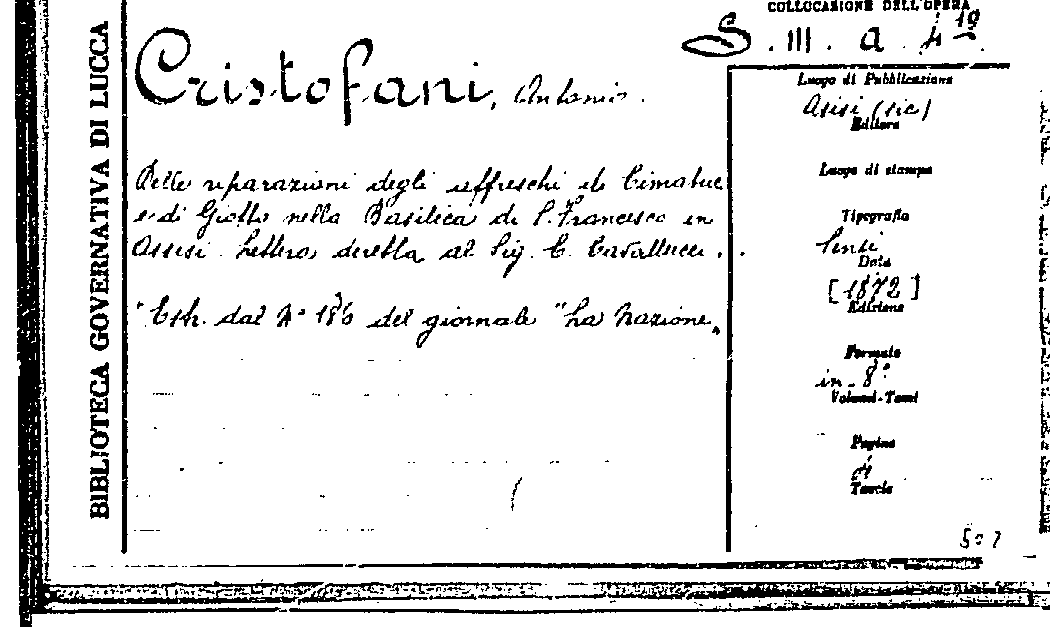 BIBLIOTECA GOVERNATIVA DI LUCCA
COLLOCAZIONE DELL'OPERA
S. III. a. 4 19
Cristofani, Antonio.
Delle riparazioni degli affreschi di Cimabue
e di Giotto nella Basilica di S. Francesco in
Assisi. Lettera diretta al Sig. C. Cavallucci . . .
"Estr. dal N° 186 del giornale "La Nazione„
Luogo di Pubblicazione
Asisi (sic)
Editore
Luogo di stampa
Tipografia
Sensi
Data
[1872]
Edizione
Formato
in-8°
Volumi-Tomi
Pagine
Tavole